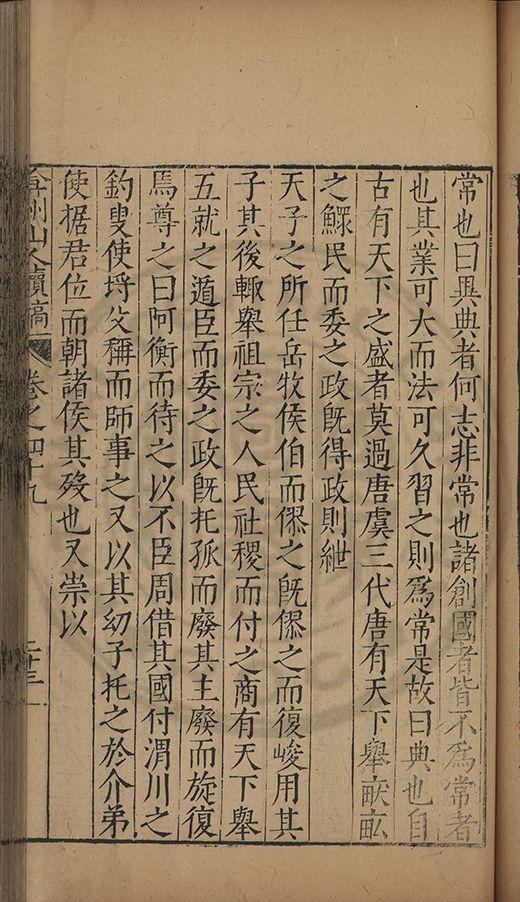 常也曰異典者何志非常也諸創國者皆不爲常者
也其業可大而法可久習之則爲常是故曰典也自
古有天下之盛者莫過唐虞三代唐有天下舉畎畝
之鰥民而委之政旣得政則紲
天子之所任岳牧侯伯而傺之旣傺之而復峻用其
子其後輙舉祖宗之人民社稷而付之商有天下舉
五就之遁臣而委之政旣托孤而廢其主廢而旋復
焉尊之曰阿衡而待之以不臣周借其國付渭川之
釣叟使埒父稱而師事之又以其幼子托之於介弟
使据君位而朝諸侯其歿也又崇以
弇州山人續稿 卷之四十九 二十三